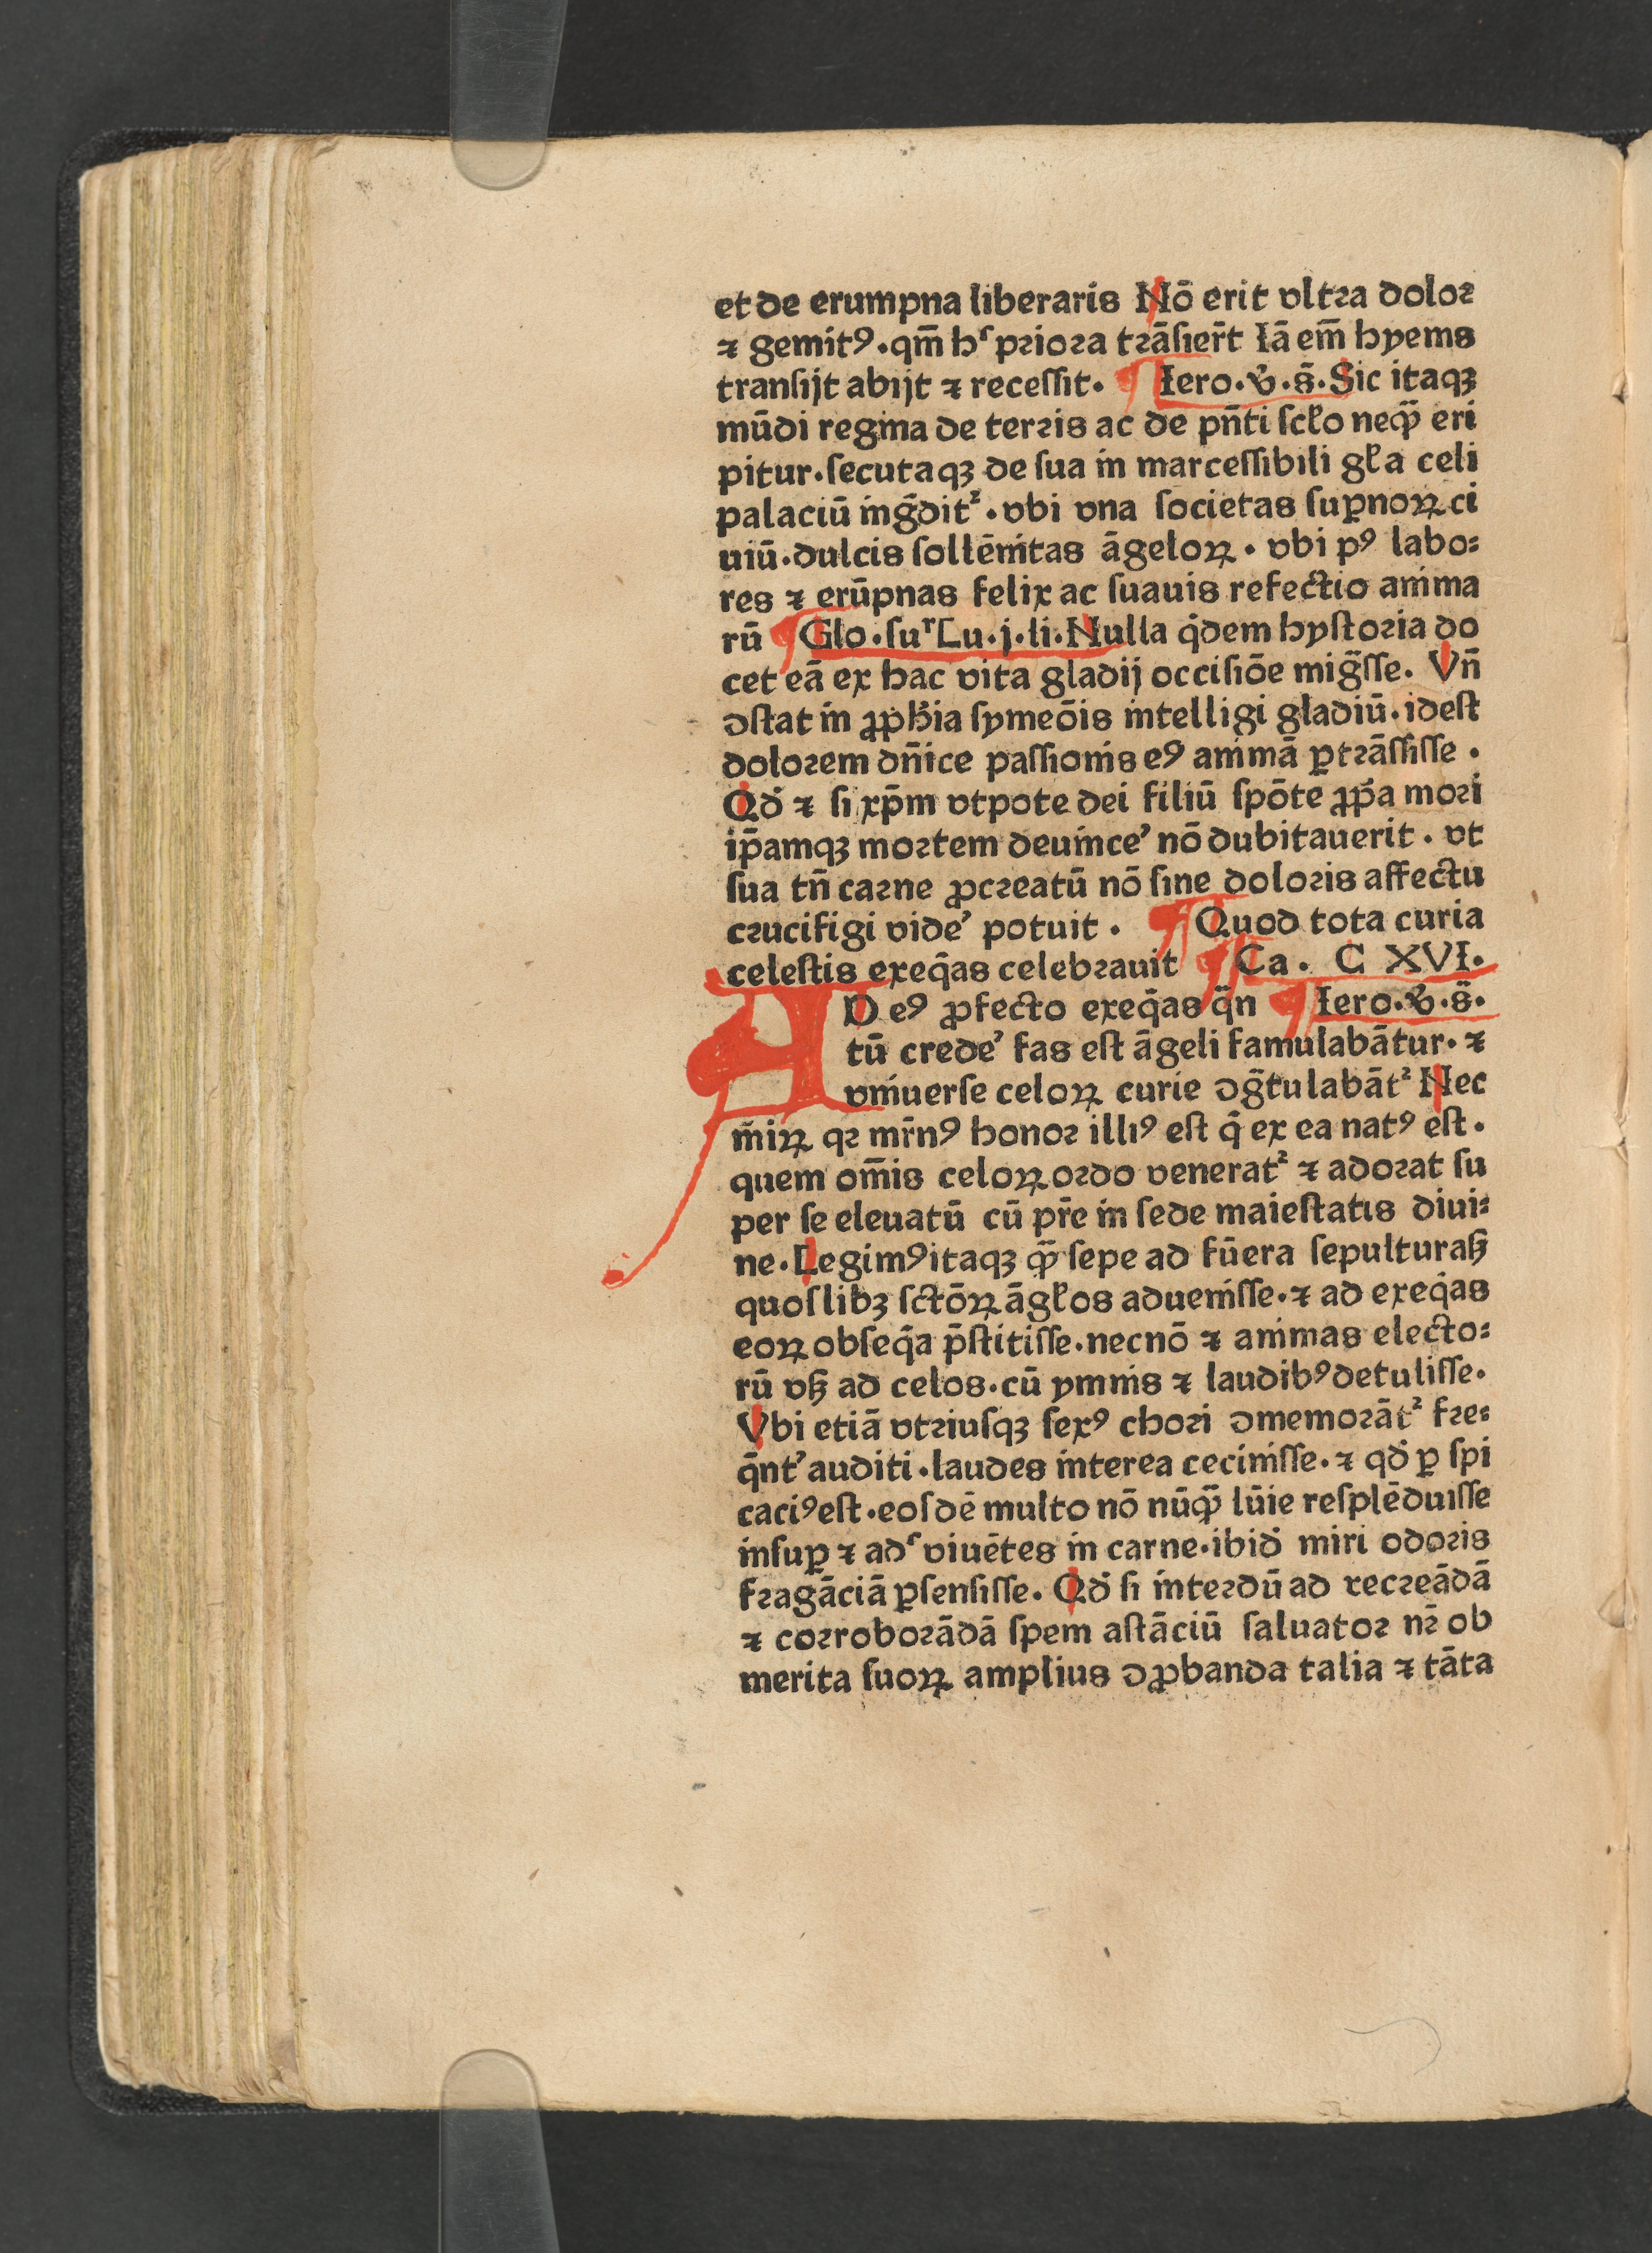 et de erumpna liberaris Nō erit vltꝛa doloꝛ
⁊ gemitꝰ·qm̄ hˢ pꝛioꝛa tꝛāſier̄t Iā em̄ hyems
tranſijt abijt ⁊ receſſit· ¶ Iero·ꝟ·s̄·Sic itaqꝫ
mūdi regina de terꝛis ac de pn̄ti ſcl̓o neqꝙ̄ eri
pitur·ſecutaqꝫ de ſua in marceſſibili gl̓a celi
palaciū ingd̄it᷑·vbi vna ſocietas ſuꝑnoꝝ ci
uiū·dulcis ſollēnitas āgeloꝝ·vbi pꝰ labo⸗
res ⁊ erūpnas felix ac ſuauis refectio anima
rū ¶ Glo·ſuʳ Lu·j·li·Nulla q̇dem hyſtoꝛia do
cet eā ex hac vita gladij occiſiōe mig̃ſſe. Vn̄
ꝯſtat in ꝓpħia ſymeōis intelligi gladiū·ideſt
doloꝛem dn̄ice paſſionis eꝰ animā ꝑtꝛāſſiſſe ·
Qd̓ ⁊ ſi xp̄m vtpote dei filiū ſpōte ꝓp̓a moꝛi
ip̄amqꝫ moꝛtem deuinceʼ nō dubitauerit · vt
ſua tn̄ caꝛne ꝓcꝛeatū nō ſine doloꝛis affectu
cꝛucifigi videʼ potuit · ¶ Quod tota curia
celeſtis exeq̇as celebꝛauit ¶ Ca· C XVI·
AD eꝰ ꝓfecto exeq̇as q̃n ¶ Iero·ꝟ·s̄·
tū credeʼ fas eſt āgeli famulabātur·⁊
vniuerſe celoꝝ curie ꝯg̃tulabāt᷑ Nec
m̄iꝝ qꝛ mr̄nꝰ honoꝛ illiꝰ eſt q̇ ex ea natꝰ eſt·
quem om̄is celoꝝ oꝛdo venerat᷑ ⁊ adoꝛat ſu
per ſe eleuatū cū pr̄e in ſede maieſtatis diui⸗
ne·Legimꝰ itaqꝫ ꝙ̄ ſepe ad fūera ſepulturaſꝫ
quoſlibꝫ ſctōꝝ āgl̓os adueniſſe·⁊ ad exeq̇as
eoꝝ obſeq̇a p̄ſtitiſſe·necnō ⁊ animas electo⸗
rū vſꝫ ad celos·cū ymnis ⁊ laudibꝰ detuliſſe·
Vbi etiā vtꝛiuſqꝫ ſexꝰ choꝛi ꝯmemoꝛāt᷑ fꝛe⸗
q̄ntʼ auditi·laudes interea ceciniſſe·⁊ qd̓ ꝑ ſpi
caciꝰ eſt·eoſdē multo nō nūꝙ̄ lūie reſplēduiſſe
inſuꝑ ⁊ adˢ viuētes in carne·ibid̓ miri odoꝛis
fꝛagāciā ꝑſenſiſſe. Qd̓ ſi inteꝛdū ad recꝛeādā
⁊ coꝛroboꝛādā ſpem aſtāciū ſaluatoꝛ nꝛ̄ ob
merita ſuoꝝ amplius ꝯꝓbanda talia ⁊ tāta